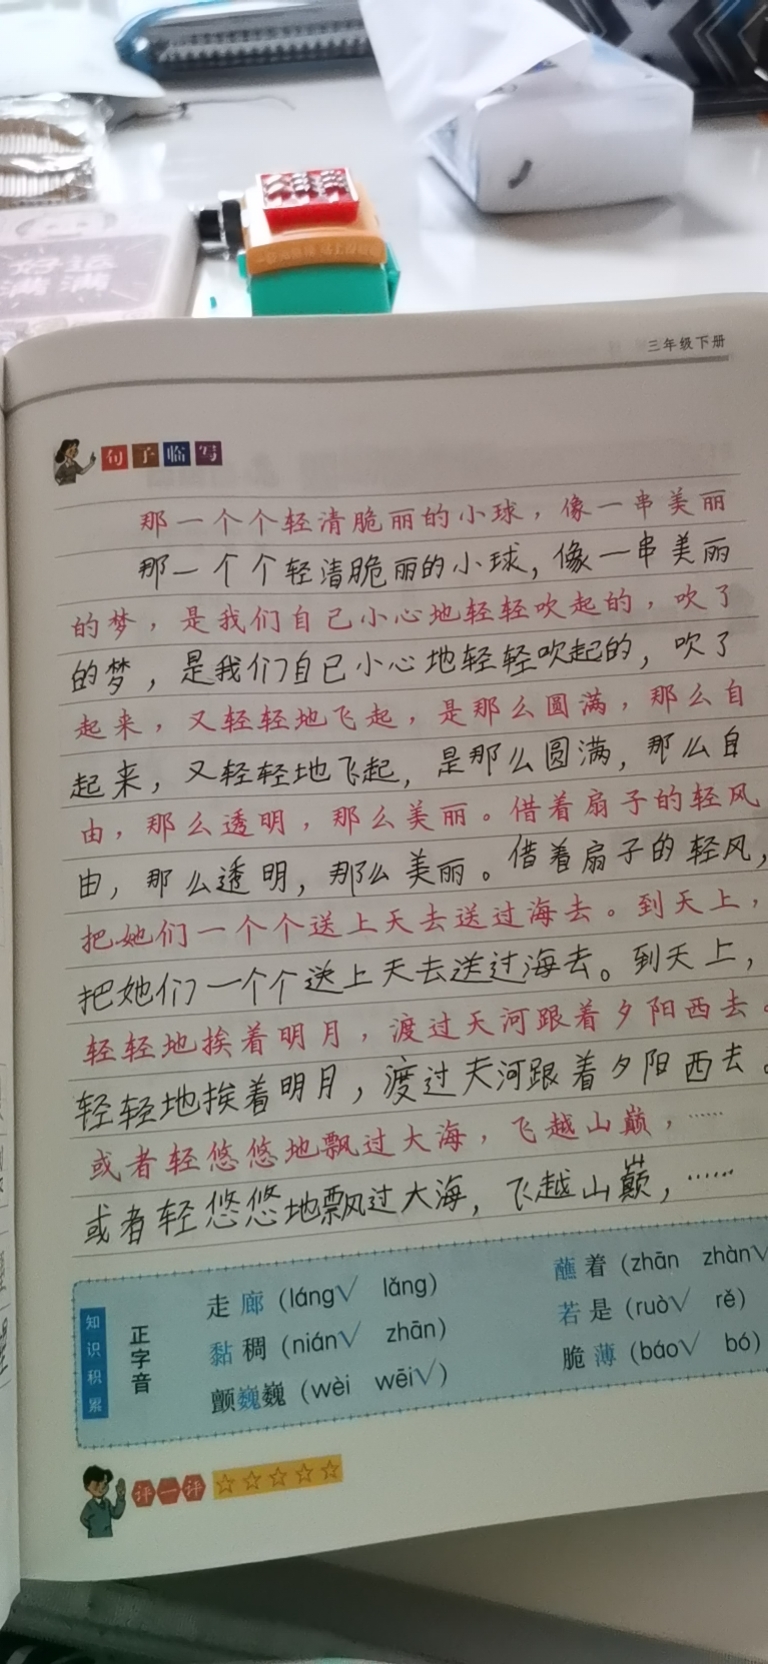 好运
满满
三年级下册
句子临写
那一个个轻清脆丽的小球，像一串美丽
那一个个轻清脆丽的小球，像一串美丽
的梦，是我们自己小心地轻轻吹起的，吹了
的梦，是我们自己小心地轻轻吹起的，吹了
起来，又轻轻地飞起，是那么圆满，那么自
起来，又轻轻地飞起，是那么圆满，那么自
由，那么透明，那么美丽。借着扇子的轻风
由，那么透明，那么美丽。借着扇子的轻风，
把她们一个个送上天去送过海去。到天上，
把她们一个个送上天去送过海去。到天上，
轻轻地挨着明月，渡过天河跟着夕阳西去。
轻轻地挨着明月，渡过天河跟着夕阳西去。
或者轻悠悠地飘过大海，飞越山巅，……
或者轻悠悠地飘过大海，飞越山巅，……
知识积累
正字音
走廊（láng√ lǎng） 蘸着（zhān zhàn√
黏稠（nián√ zhān） 若是（ruò√ rě）
颤巍巍（wèi wēi√） 脆薄（báo√ bó）
评一评 ☆☆☆☆☆